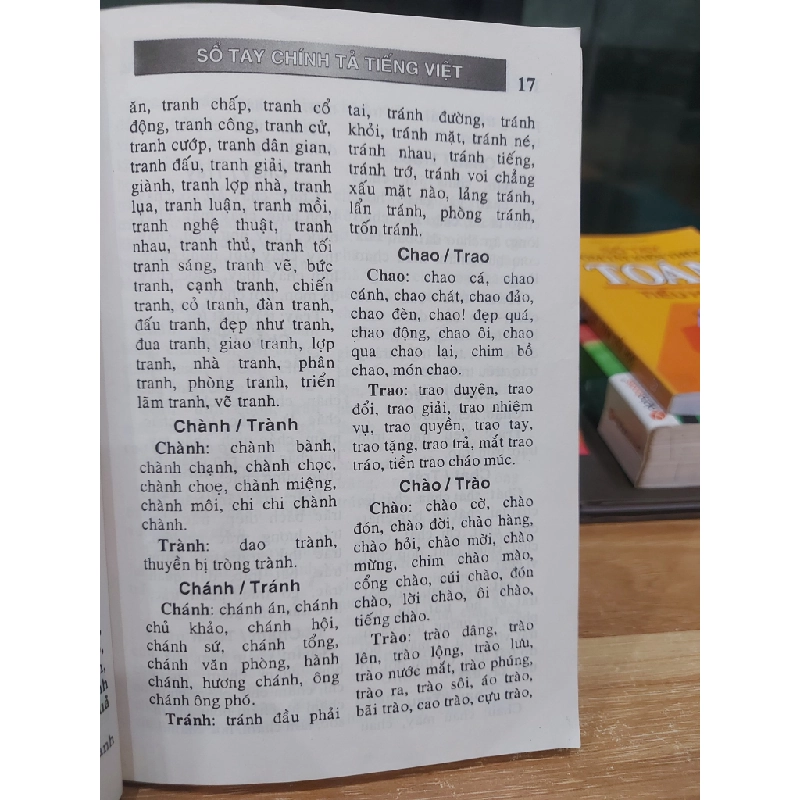 SỔ TAY CHÍNH TẢ TIẾNG VIỆT
17
ăn, tranh chấp, tranh cổ
động, tranh công, tranh cử,
tranh cướp, tranh dân gian,
tranh đấu, tranh giải, tranh
giành, tranh lợp nhà, tranh
lụa, tranh luận, tranh mồi,
tranh nghệ thuật, tranh
nhau, tranh thủ, tranh tối
tranh sáng, tranh vẽ, bức
tranh, cạnh tranh, chiến
tranh, cỏ tranh, đàn tranh,
đấu tranh, đẹp như tranh,
đua tranh, giao tranh, lợp
tranh, nhà tranh, phân
tranh, phòng tranh, triển
lãm tranh, vẽ tranh.
Chành / Trành
Chành: chành bành,
chành chạnh, chành chọc,
chành choẹ, chành miệng,
chành môi, chi chi chành
chành.
Trành: dao trành,
thuyền bị tròng trành.
Chánh / Tránh
Chánh: chánh án, chánh
chủ khảo, chánh hội,
chánh sứ, chánh tổng,
chánh văn phòng, hành
chánh, hương chánh, ông
chánh ông phó.
Tránh: tránh đầu phải
tai, tránh đường, tránh
khỏi, tránh mặt, tránh né,
tránh nhau, tránh tiếng,
tránh trớ, tránh voi chẳng
xấu mặt nào, lảng tránh,
lẩn tránh, phòng tránh,
trốn tránh.
Chao / Trao
Chao: chao cá, chao
cánh, chao chát, chao đảo,
chao đèn, chao! đẹp quá,
chao động, chao ôi, chao
qua chao lại, chim bồ
chao, món chao.
Trao: trao duyên, trao
đổi, trao giải, trao nhiệm
vụ, trao quyền, trao tay,
trao tặng, trao trả, mắt trao
tráo, tiền trao cháo múc.
Chào / Trào
Chào: chào cờ, chào
đón, chào đời, chào hàng,
chào hỏi, chào mời, chào
mừng, chim chào mào,
cổng chào, cúi chào, đón
chào, lời chào, ôi chào,
tiếng chào.
Trào: trào dâng, trào
lên, trào lộng, trào lưu,
trào nước mắt, trào phúng,
trào ra, trào sôi, áo trào,
bãi trào, cao trào, cựu trào,
TOÁN